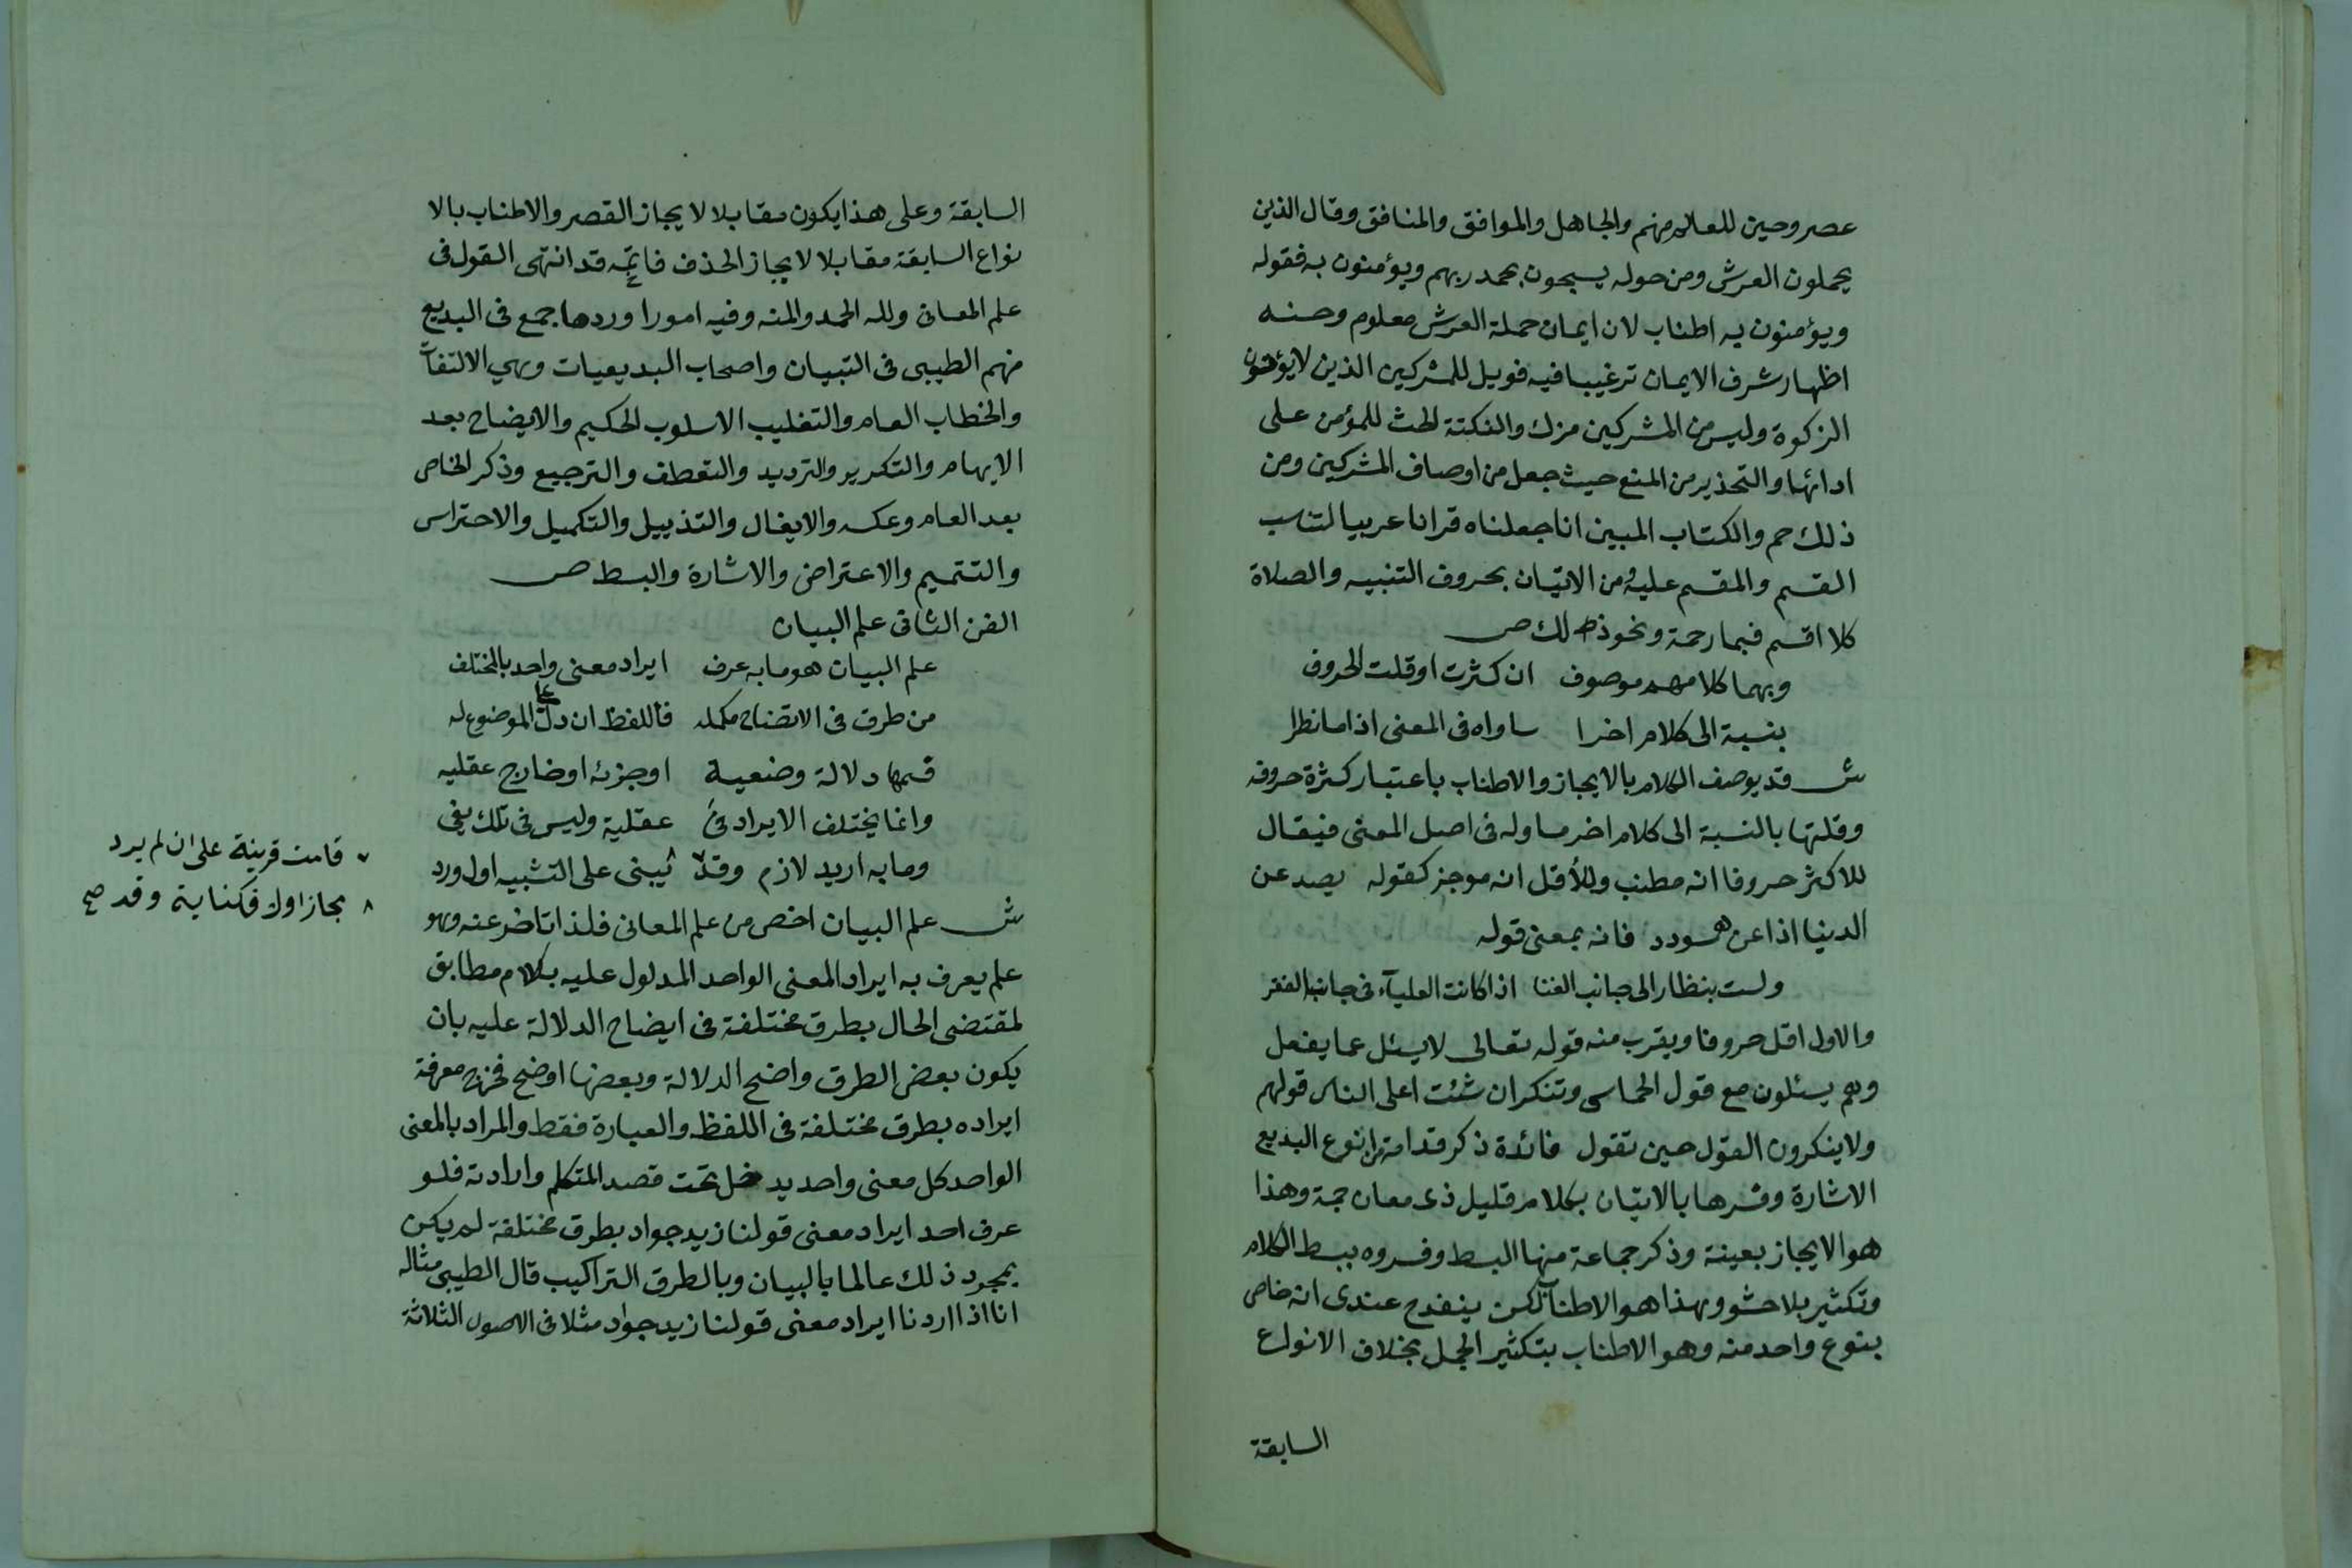 عصر وحين للعالم منهم والجاهل والموافق والمنافق وقال الذين
يحملون العرش ومن حوله يسبحون بحمد ربهم ويؤمنون به فقوله
ويؤمنون به اطناب لان ايمان حملة العرش معلوم وحسنه
اظهار شرف الايمان ترغيبا فيه فويل للمشركين الذين لا يؤتون
الزكوة وليس من المشركين مزك والنكتة الحث للمؤمن على
ادائها والتحذير من المنع حيث جعل من اوصاف المشركين ومن
ذلك حم والكتاب المبين انا جعلناه قرانا عربيا لتناسب
القسم والمقسم عليه ومن الاتيان بحروف التنبيه والصلاة
كلا اقسم فبما رحمة ونحو ذلك ص
وبهما كلامهم موصوف ان كثرت او قلت الحروف
بنسبة الى كلام اخرا ساواه فى المعنى اذا ما نظرا
ش قد يوصف الكلام بالايجاز والاطناب باعتبار كثرة حروفه
وقلتها بالنسبة الى كلام اخر مساو له فى اصل المعنى فيقال
للاكثر حروفا انه مطنب وللأقل انه موجز كقوله يصد عن
الدنيا اذا عن سودد فانه بمعنى قوله
ولست بنظار الى جانب الغنا اذا كانت العلياء فى جانب الفقر
والاول اقل حروفا ويقرب منه قوله تعالى لا يسئل عما يفعل
وهم يسئلون مع قول الحماسى وتنكر ان شئت اعلى الناس قولهم
ولا ينكرون القول حين تقول فائدة ذكر قدامة من انوع البديع
الاشارة وفسرها بالاتيان بكلام قليل ذى معان جمة وهذا
هو الايجاز بعينة وذكر جماعة منها البسط وفسروه ببسط الكلام
وتكثير بلا حشو وبهذا هو الاطناب لكن ينقدح عندى انه خاص
بنوع واحد منه وهو الاطناب بتكثير الجمل بخلاف الانواع
السابقة
السابقة وعلى هذا يكون مقابلا لايجاز القصر والاطناب بالا
نواع السابقة مقابلا لايجاز الحذف خاتمه قد انتهى القول فى
علم المعانى ولله الحمد والمنه وفيه امورا وردها جمع فى البديع
منهم الطيبى فى التبيان واصحاب البديعيات وهي الالتفات
والخطاب العام والتغليب الاسلوب الحكيم والايضاح بعد
الايهام والتكرير والترديد والتعطف والترجيع وذكر الخاص
بعد العام وعكسه والايغال والتذييل والتكميل والاحتراس
والتتميم والاعتراض والاشارة والبسط ص
الفن الثانى علم البيان
علم البيان هو ما به عرف ايراد معنى واحد بالمختلف
من طرق فى الاتضاح مكمله فاللفظ ان دل على الموضوع له
قسمها دلالة وضعية او جزئه او خارج عقليه
وانما يختلف الايراد فى عقلية وليس فى تلك يفى
وما به اريد لازم وقد ٧ ٨ يبنى على التشبيه اول ورد
٧ قامت قرينة على ان لم يرد
٨ مجازا ولا فكناية وقد صح
ش علم البيان اخص من علم المعانى فلذا تاخر عنه وهو
علم يعرف به ايراد المعنى الواحد المدلول عليه بكلام مطابق
لمقتضى الحال بطرق مختلفة فى ايضاح الدلالة عليه بان
يكون بعض الطرق واضح الدلالة وبعضها اوضح فخرج معرفة
ايراده بطرق مختلفة فى اللفظ والعبارة فقط والمراد بالمعنى
الواحد كل معنى واحد يدخل تحت قصد المتكلم وارادته فلو
عرف احد ايراد معنى قولنا زيد جواد بطرق مختلفة لم يكن
بمجرد ذلك عالما بالبيان وبالطرق التراكيب قال الطيبى مثاله
انا اذا اردنا ايراد معنى قولنا زيد جواد مثلا فى الاصول الثلاثة